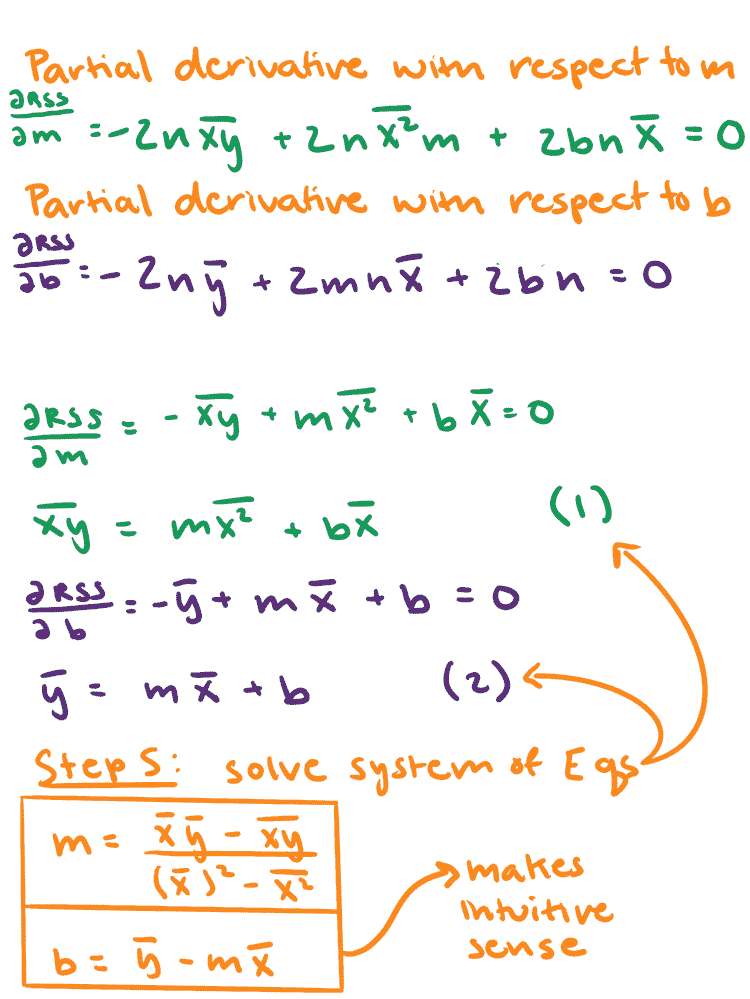 Partial derivative with respect to m
∂RSS/∂m = -2n x̅y̅ + 2n x̅²̅ m + 2bn x̅ = 0
Partial derivative with respect to b
∂RSS/∂b = -2n y̅ + 2mn x̅ + 2bn = 0
∂RSS/∂m = - x̅y̅ + m x̅²̅ + b x̅ = 0
x̅y̅ = m x̅²̅ + b x̅ (1)
∂RSS/∂b = - y̅ + m x̅ + b = 0
y̅ = m x̅ + b (2)
Step 5: solve system of Eqs
m = (x̅ y̅ - x̅y̅)/((x̅)² - x̅²̅)
makes
intuitive
sense
b = y̅ - m x̅